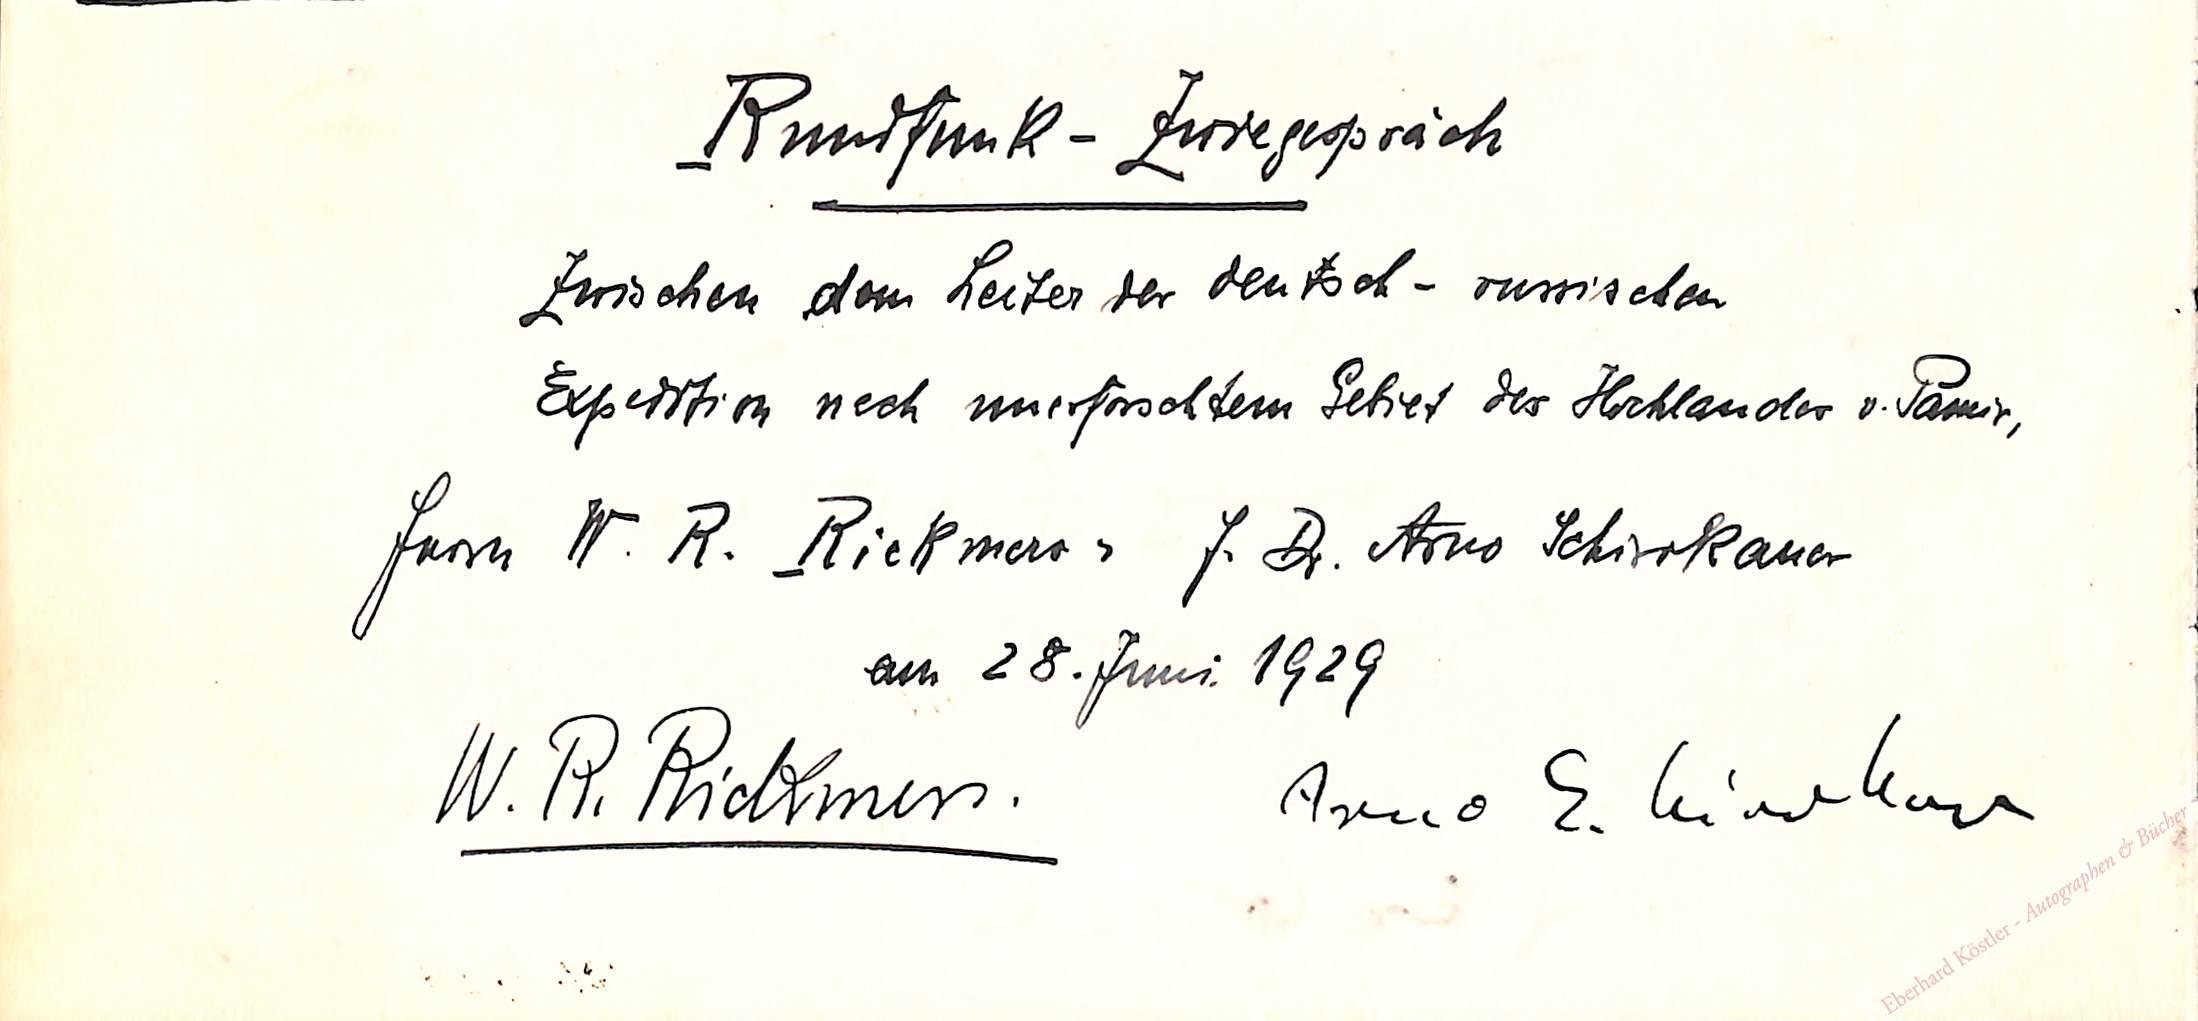 Rundfunk - Zwiegespräch
Zwischen dem Leiter der deutsch - russischen
Expedition nach unerforschtem Gebiet des Hochlandes v. Pamir,
Herrn W. R. Rickmers
Dr. Arno Schirokauer
am 28. Juni 1929
W. R. Rickmers.
Arno
Eberhard Köstler - Autographen & Bücher